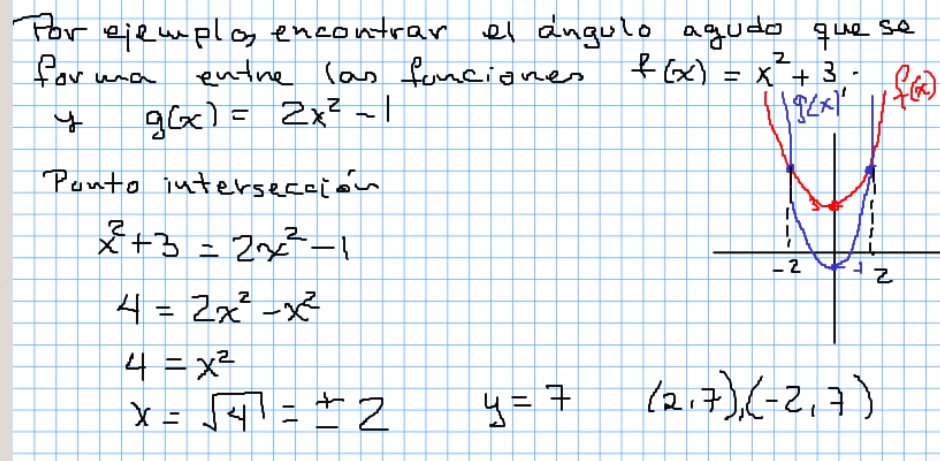 Por ejemplo, encontrar el ángulo agudo que se
forma entre las funciones f(x) = x² + 3.
y g(x) = 2x² - 1
g(x)
f(x)
Punto intersección
3
x² + 3 = 2x² - 1
-2
-1
2
4 = 2x² - x²
4 = x²
x = √4 = ± 2 y = 7 (2,7),(-2,7)